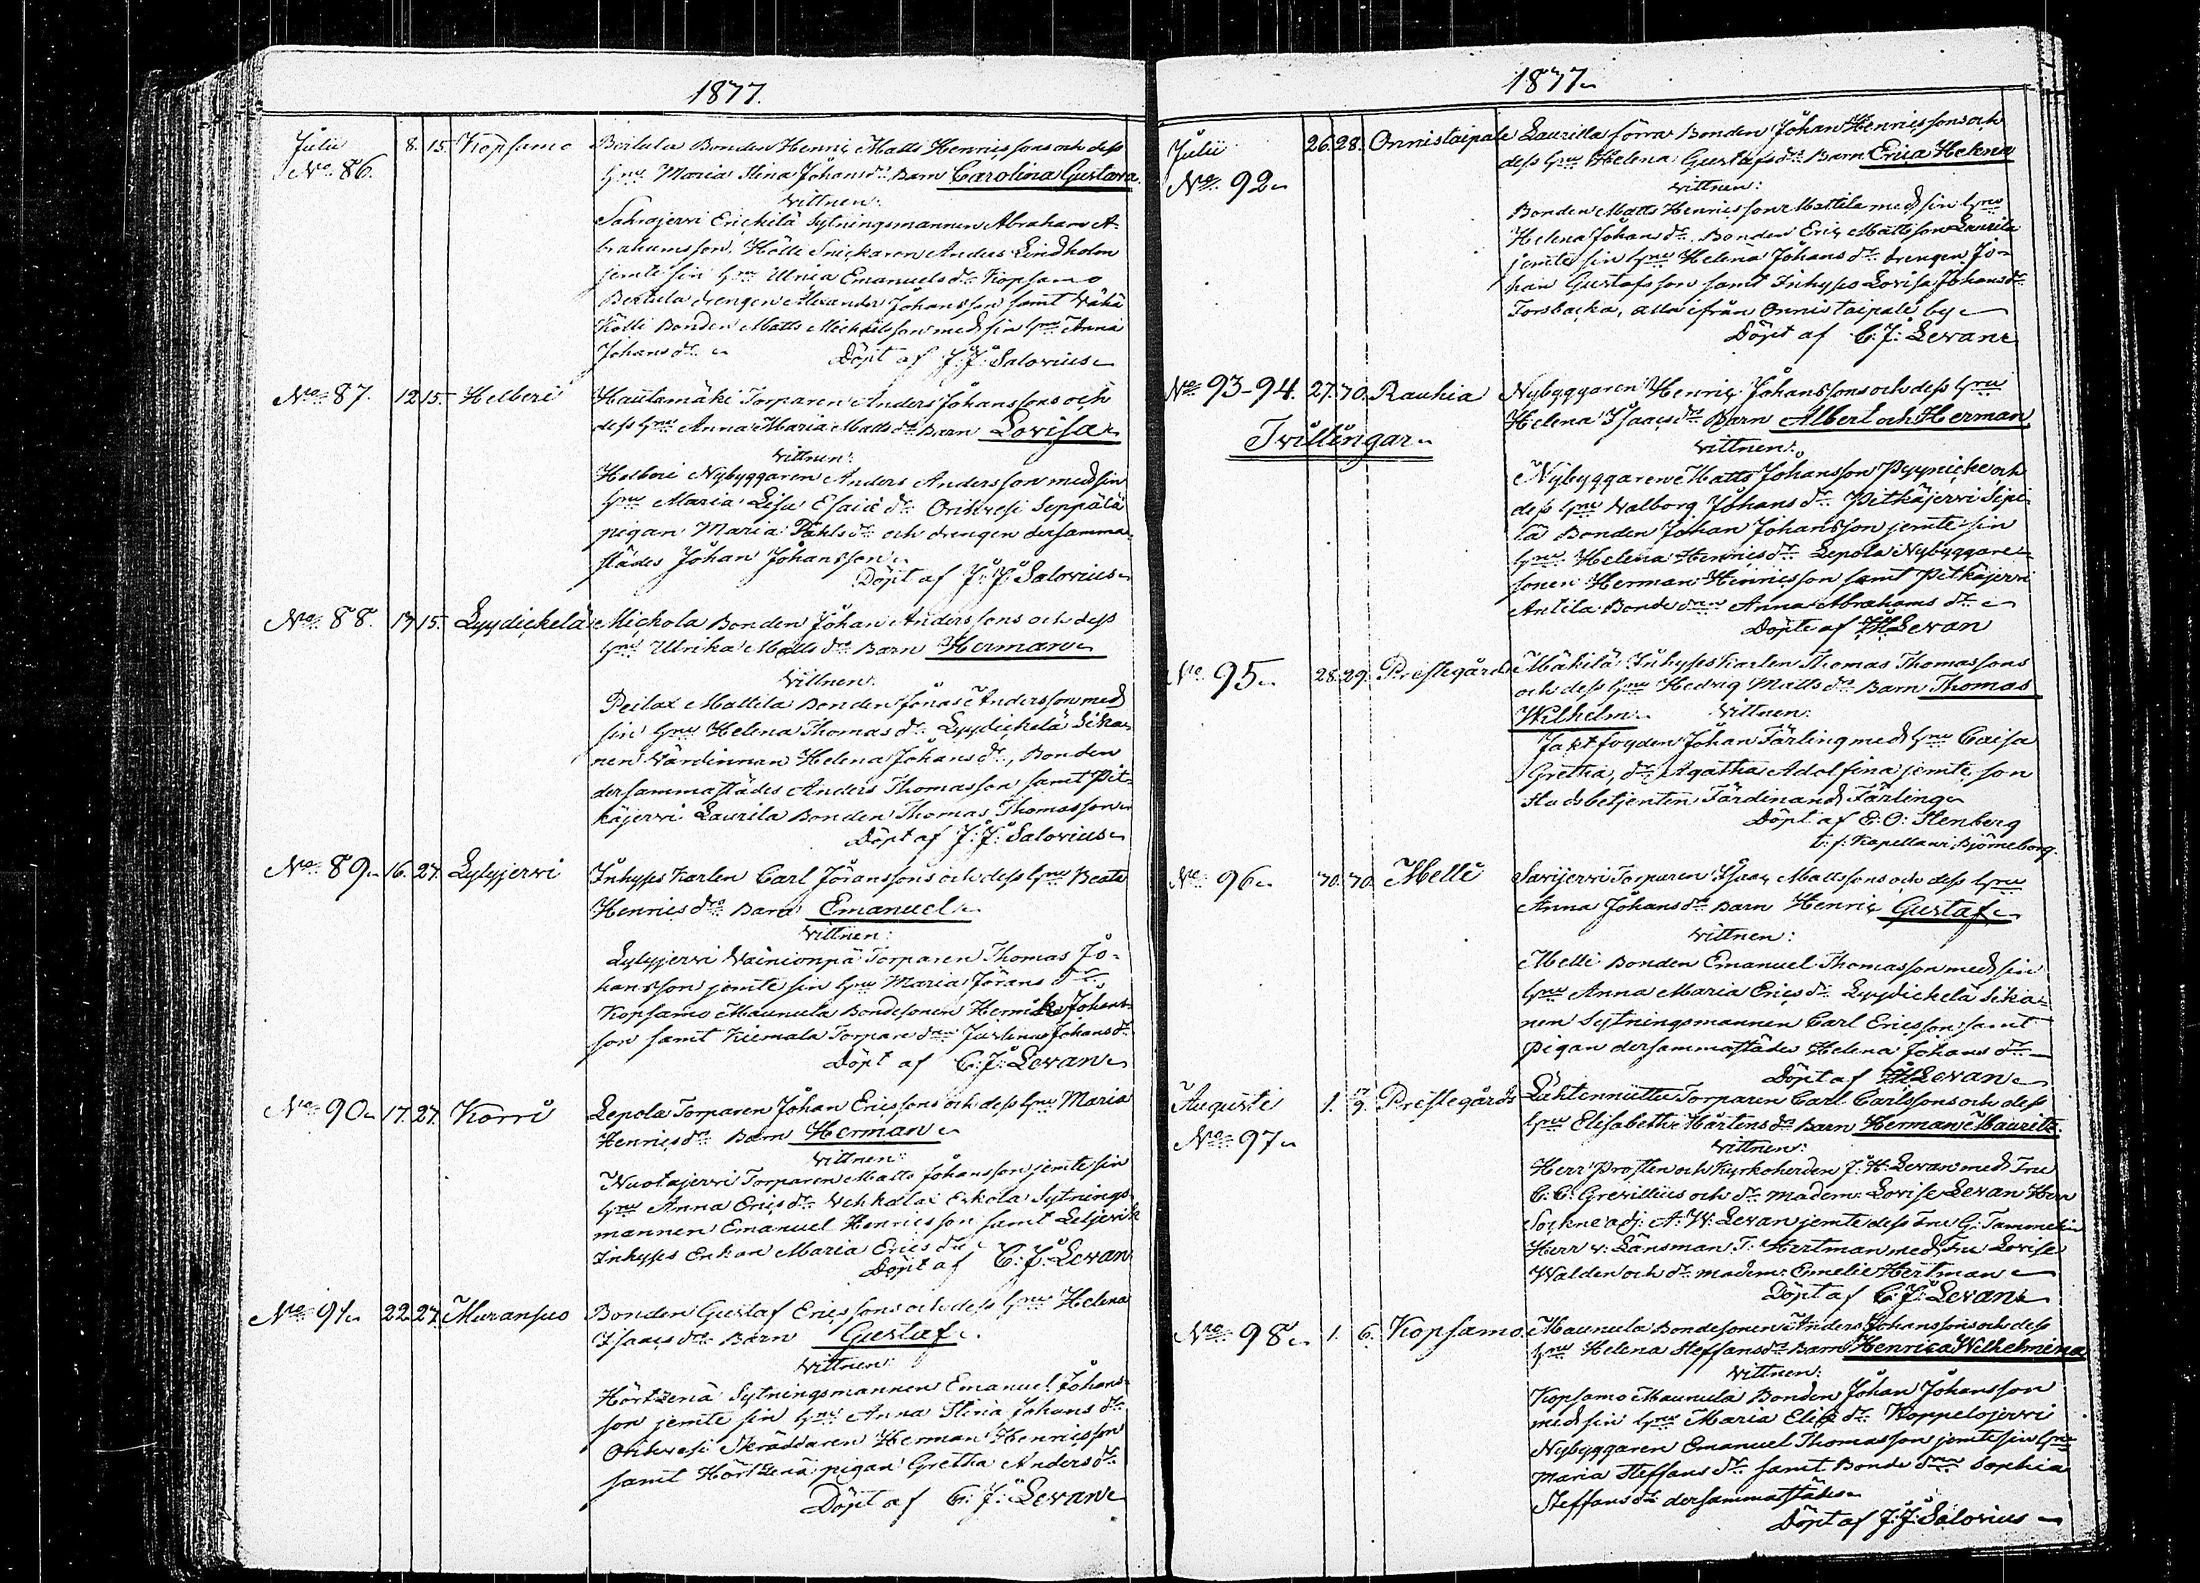 1877.
Julii 8. 15. Kopsamo Bertula Bonden Henric Matts Henricssons och dess
No 86. Hru Maria Stina Johansdr Barn Carolina Gustava.
Vittnen:
Sahrajervi Erickilä Sytningsmannen Abraham A-
brahamsson, Hölli Snickaren Anders Lindholm
jemte sin Hru Ulrica Emanuelsdr Kopsamo
Bertula drengen Alexander Johansson samt Wäkä
Kölli Bonden Matts Michelsson med sin Hru Anna
Johansdr
Döpt af J. J. Salovius
No 87. 12 15. Helberi Hautamäki Torparen Anders Johanssons och
dess Hru Anna Maria Mattsdr Barn Lovisa
Vittnen:
Helberi Nybyggaren Anders Andersson med sin
Hru Maria Lisa Esaiædr Orihvesi Seppälä
pigan Maria Påhlsdr och drengen dersamma-
städes Johan Johansson
Döpt af J. J. Salovius
No 88. 13 15. Lyydickelä Mickola Bonden Johan Anderssons och dess
Hru Ulrika Mattsdr Barn Herman
Vittnen:
Peilax Mattila Bonden Jonas Andersson med
sin Hru Helena Thomasdr Lyydickelä Sika-
nen Värdinnan Helena Johansdr, Bonden
dersammastädes Anders Thomasson samt Pit-
käjervi Laurila Bonden Thomas Thomasson
Döpt af J. J. Salovius
No 89. 16. 27. Lylyjervi Inhyses Karlen Carl Jöranssons och dess Hru Beata
Henricsdr Barn Emanuel
Vittnen:
Lylyjervi Wäinionpä Torparen Thomas Jo-
hansson jemte sin Hru Maria Jöransdr
Kopsamo Maunula Bondesonen Henrik Johans-
son samt Kiemala Torparedrn Justina Johansdr
Döpt af C. J. Levan
No 90. 17. 27. Korri Lepola Torparen Johan Ericssons och dess Hru Maria
Henricsdr Barn Herman
Vittnen:
Nuotajervi Torparen Matts Johansson jemte sin
Hru Anna Ericsdr Vehkalax Erkola Sytnings-
mannen Emanuel Henricsson samt
Inhyses Enkan Maria Ericsdr
Döpt af C. J. Levan
No 91. 22. 27. Muransuo Bonden Gustaf Ericssons och dess Hru Helena
Isaacsdr Barn Gustaf.
Vittnen:
Hörtzenä Sytningsmannen Emanuel Johans-
son jemte sin Hru Anna Stina Johansdr
Orihvesi Skräddaren Herman Henricsson
samt Hörtzenä pigan Gretha Andersdr
Döpt af C. J. Levan
1877
Julii 26. 28. Onnistaipale Laurilla förra Bonden Johan Henricssons och
No 92 dess Hru Helena Gustafsdr Barn Erica Helena
Vittnen:
Bonden Matts Henricsson Mattila med sin Hru
Helena Johansdr, Bonden Eric Mattsson Laurila
jemte sin Hru Helena Johansdr drengen Jo-
han Gustafsson samt Inhyses Lovisa Johansdr
Torsbacka, alla ifrån Onnistaipale by
Döpt af C. J. Levan
No 93-94. 27. 30. Rauhia Nybyggaren Henric Johanssons och dess Hru
Helena Isaacsdr Barn Albert och Herman
Tvillingar
Vittnen:
Nybyggaren Matts Johansson Pyynicke och
dess Hru Valborg Johansdr Pitkäjervi Sipi-
lä Bonden Johan Johansson jemte sin
Hru Helena Henricsdr Lepola Nybyggare
sonen Herman Henricsson samt Pitkäjervi
Antila Bondedrn Anna Abrahamsdr
Döpte af Levan
No 95 28. 29. Prestegårds Mäkilä Inhyses Karlen Thomas Thomassons
och dess Hru Hedvig Mattsdr Barn Thomas
Wilhelm Vittnen:
Jaktfogden Johan Färling med Hru Caisa
Gretha, dr Agatha Adolfina jemte son
Stadsbetjenten Färdinand Färling
Döpt af E. O. Stenberg
t. f. Kapellan i Björneborg.
No 96 30. 30. Melli Savijervi Torparen Isaac Mattssons och dess Hru
Anna Johansdr Barn Henric Gustaf
Vittnen:
Melli Bonden Emanuel Thomasson med sin
Hru Anna Maria Ericsdr Lyydickelä Sika-
nen Sytningsmannen Carl Ericsson samt
pigan dersammastädes Helena Johansdr
Döpt af Levan
Augusti 1. Prestegårds Torparen Carl Carlssons och dess
No 97 Hru Elisabeth Mårtensdr Barn Herman Mauritz.
Vittnen:
Herr Prosten och Kyrkoherden J. H. Levan med Fru
C. C. Grevillius och dr Madem. Lovise Levan Herr
Sockne adj: A. W. Levan jemte dess Fru G. Tammelin
Herr v. Länsman T. Hertman med Fru Lovise
Walden och dr madem. Emelie Hertman
Döpt af C. J. Levan
No 98 1. 6. Kopsamo Maunula Bondesonen Anders Johanssons och dess
Hru Helena Steffansdr Barn Henrica Wilhelmina
Vittnen:
Kopsamo Maunula Bonden Johan Johansson
med sin Hru Maria Elisdr Koppelojervi
Nybyggaren Emanuel Thomasson jemte sin Hru
Maria Steffansdr samt Bondedrn Sophia
Steffansdr dersammastädes
Döpt af J. J. Salovius